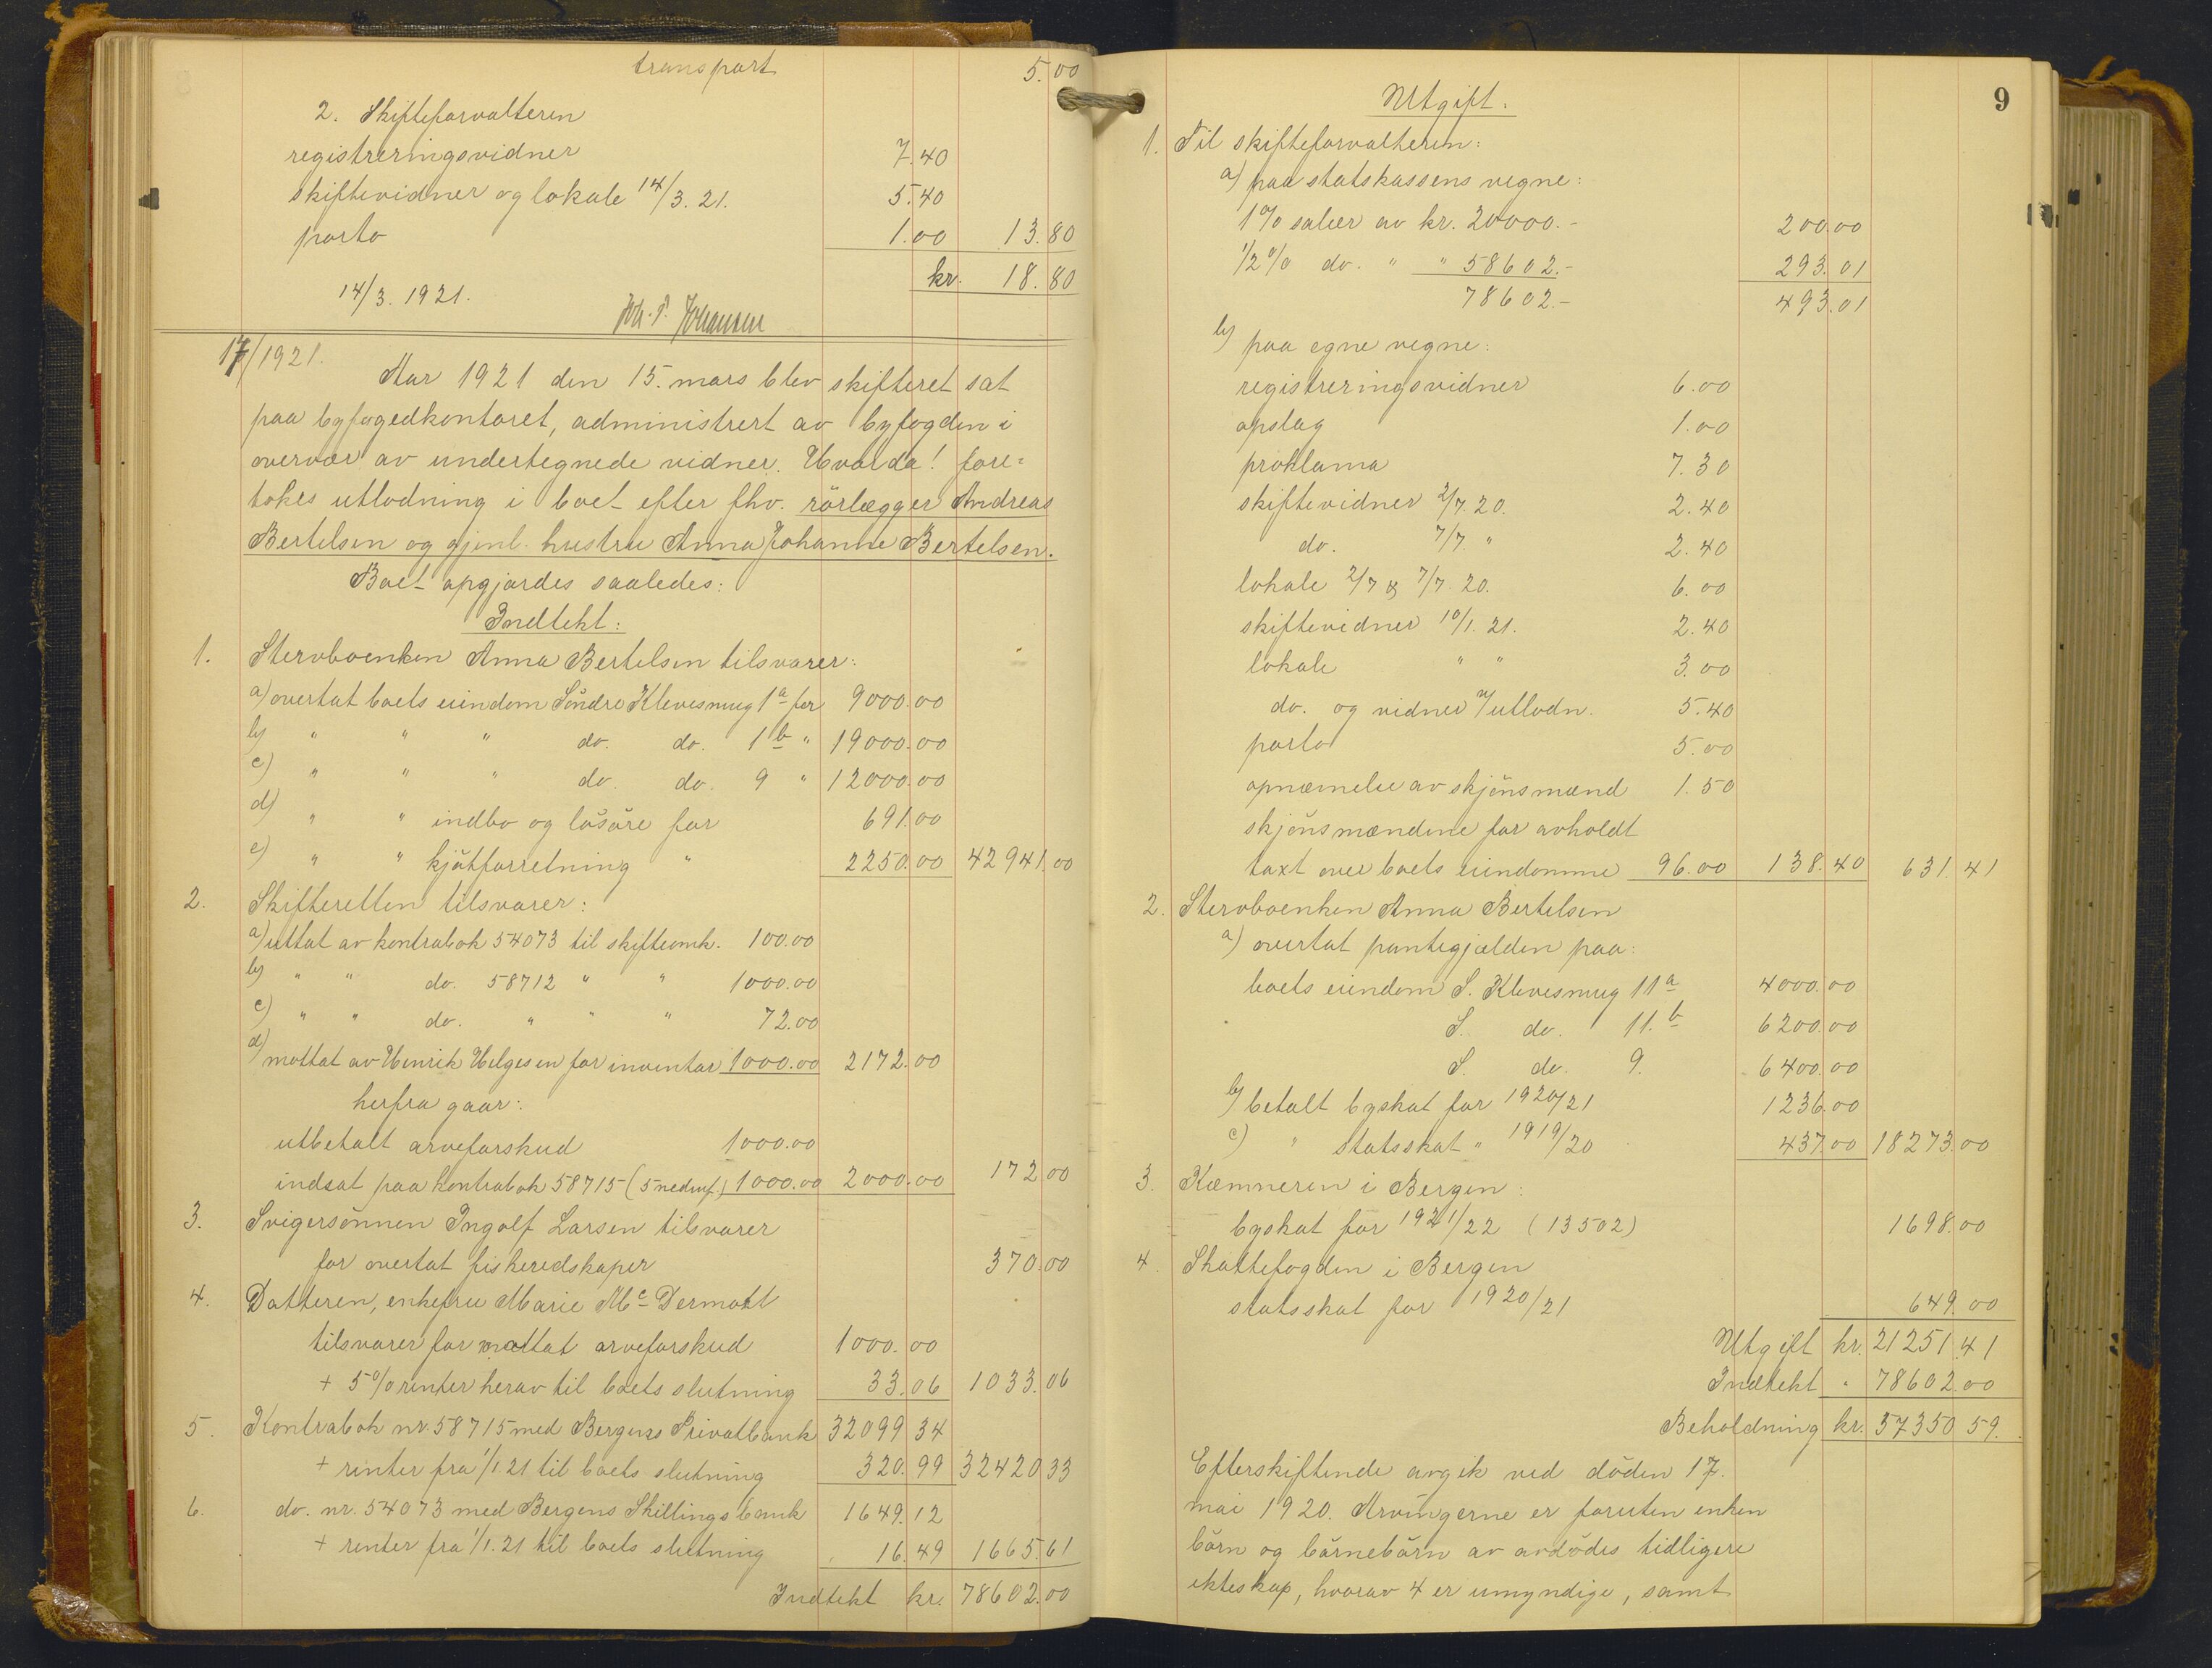 transport 5.00
2. Skifteforvalteren
registreringsvidner 7.40
skiftevidner og lokale 14/3. 21. 5.40
porto 1.00 13.80
kr. 18.80
14/3. 1921.
Joh. P. Johansen
17/1921.
Aar 1921 den 15. mars blev skifteret sat
paa byfogedkontoret, administrert av byfogden i
overvær av undertegnede vidner. Hvorda! fore=
tokes utlodning i boet efter fhv. rörlægger Andreas
Bertelsen og gjenl. hustru Anna Johanne Bertelsen.
Boet opgjordes saaledes:
Indtekt:
1. Stervboenken Anna Bertelsen tilsvarer:
a) overtat boets eiendom Söndre Klevesmug 1a for 9000.00
b) " " " do. do. 1b " 19000.00
c) " " " do. do. 9 " 12000.00
d) " " indbo og lösöre for 691.00
e) " " kjötforretning " 2250.00 42941.00
2. Skifteretten tilsvarer:
a) uttat av kontrabok 54073 til skifteomk. 100.00
b) " " do. 58712 " " 1000.00
c) " " do. " " " 72.00
d) mottat av Henrik Helgesen for inventar 1000.00 2172.00
herfra gaar:
utbetalt arveforskud 1000.00
indsat paa kontrabok 58715 (5 nedenf.) 1000.00 2000.00 172.00
3. Svigersönnen Ingolf Larsen tilsvarer
for overtat fiskeredskaper 370.00
4. Datteren, enkefru Marie Mc Dermott
tilsvarer for mottat arveforskud 1000.00
+ 5% renter herav til boets slutning 33.06 1033.06
5. Kontrabok nr. 58715 med Bergens Privatbank 32099 34
+ renter fra 1/1. 21 til boets slutning 320.99 32420 33
6. do. nr. 54073 med Bergens Skillingsbank 1649.12
+ renter fra 1/1. 21 til boets slutning 16.49 1665.61
Indtekt kr. 78602.00
9
Utgift.
1. Til skifteforvalteren:
a) paa statskassens vegne:
1% salær av kr. 20000.- 200.00
1/2% do. " " 58602.- 293.01
78602.- 493.01
b) paa egne vegne:
registreringsvidner 6.00
opslag 1.00
proklama 7.30
skiftevidner 2/7. 20. 2.40
do. 7/7. " 2.40
lokale 2/7 & 7/7. 20. 6.00
skiftevidner 10/1. 21. 2.40
lokale " " 3.00
do. og vidner v/utlodn. 5.40
porto 5.00
opnævnelse av skjönsmænd 1.50
skjönsmændene for avholdt
taxt over boets eiendomme 96.00 138.40 631.41
2. Stervboenken Anna Bertelsen
a) overtat pantegjælden paa:
boets eiendom S. Klevesmug 11a 4000.00
S. do. 11.b 6200.00
S. do. 9. 6400.00
b) betalt byskat for 1920/21 1236.00
c) " statsskat " 1919/20 437.00 18273.00
3. Kæmneren i Bergen:
byskat for 1921/22 (13502) 1698.00
4. Skattefogden i Bergen
statsskat for 1920/21 649.00
Utgift kr. 21251.41
Indtekt " 78602.00
Beholdning kr. 57350 59.
Efterskiftende avgik ved döden 17.
mai 1920. Arvingerne er foruten enken
börn og börnebörn av avdödes tidligere
ekteskap, hvorav 4 er umyndige, samt